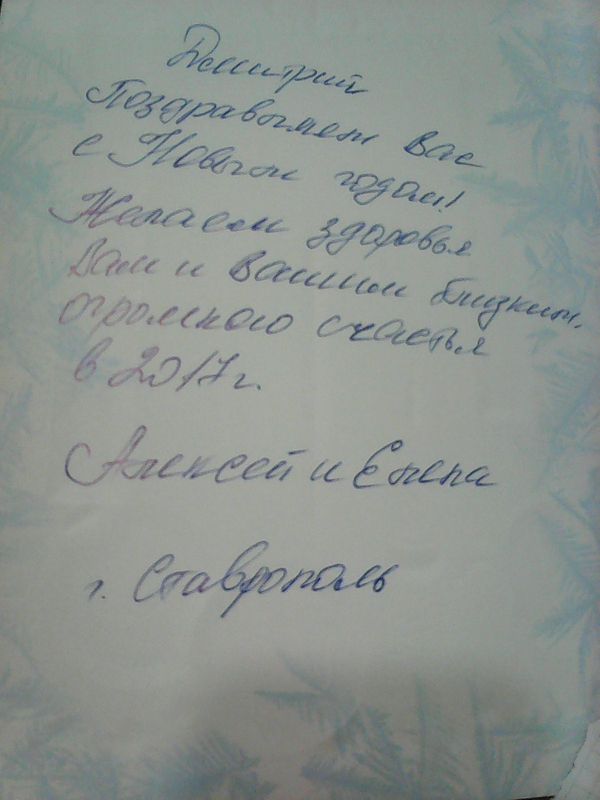 Дмитрий
Поздравляем Вас
с Новым годом!
Желаем здоровья
Вам и Вашим близким,
огромного счастья
в 2017г.
Алексей и Елена
г. Ставрополь